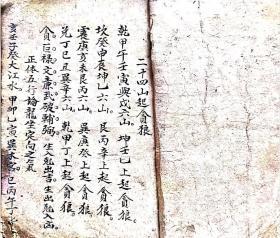 二十四山起貪狼
乾甲午壬寅與戌六山。坤壬乙上起貪狼
坎癸申辰坤乙六山。艮丙辛上起貪狼
震庚亥未艮丙六山。巽庚癸上起貪狼
兌丁巳丑巽辛六山。乾甲丁上起貪狼
貪巨祿文廉武破輔弼。生入剋出吉。生出剋入凶
正体五行論龍坐定向之氣
亥壬子癸大江水 甲卯乙寅巽木 巳丙午丁